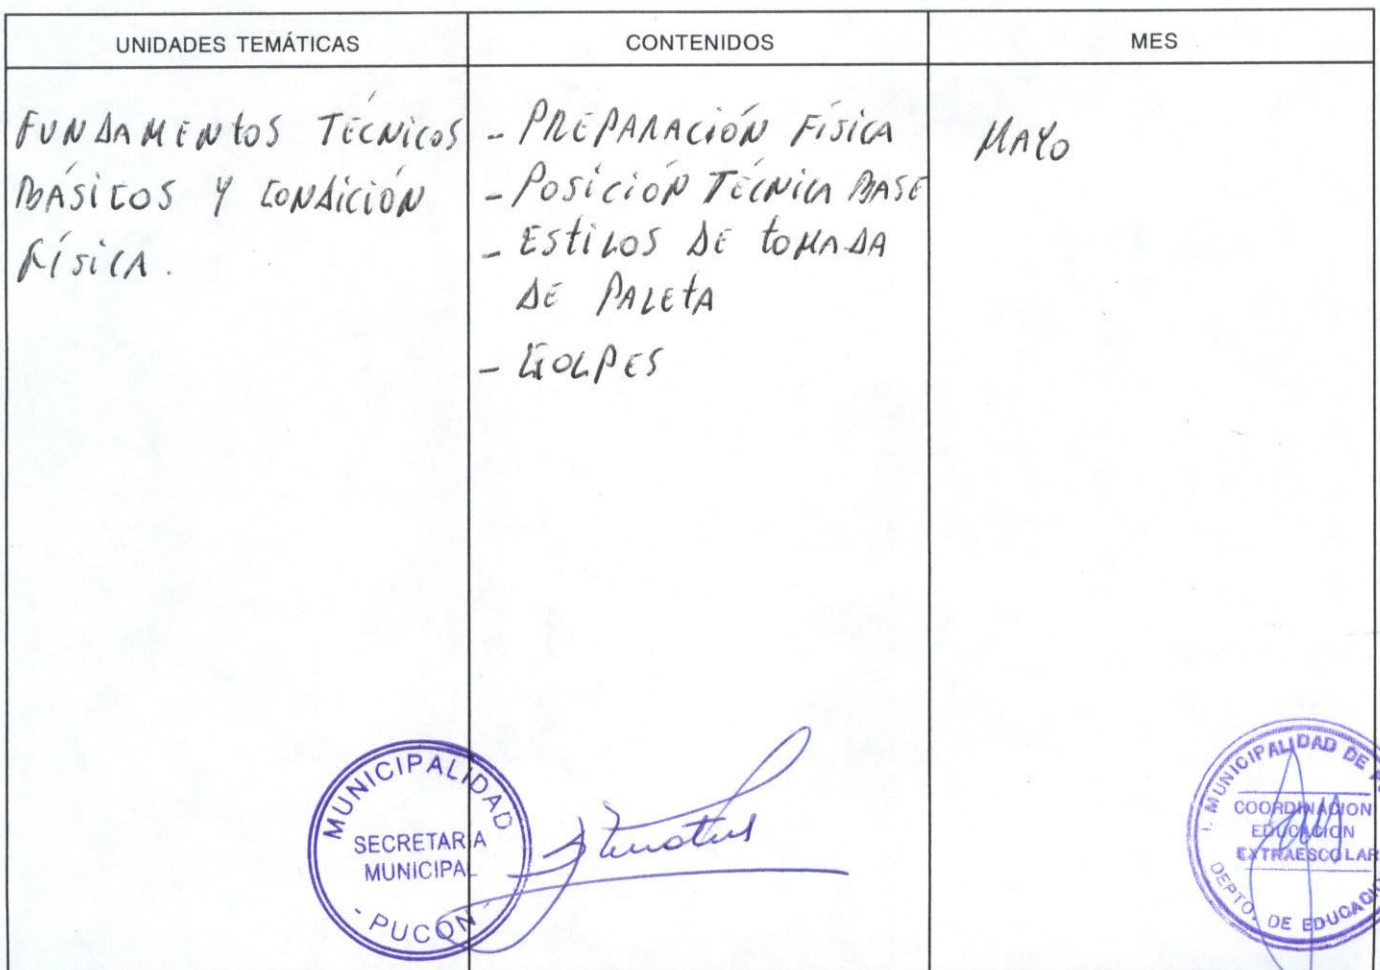 UNIDADES TEMÁTICAS
CONTENIDOS
MES
FUNDAMENTOS TÉCNICOS
BÁSICOS Y CONDICIÓN
FÍSICA.
- PREPARACIÓN FÍSICA
- POSICIÓN TÉCNICA BASE
- ESTILOS DE TOMADA
DE PALETA
- GOLPES
MAYO
MUNICIPALIDAD
SECRETARIA
MUNICIPAL
- PUCON -
I. MUNICIPALIDAD DE
COORDINACION
EDUCACION
EXTRAESCOLAR
DEPTO. DE EDUCACI